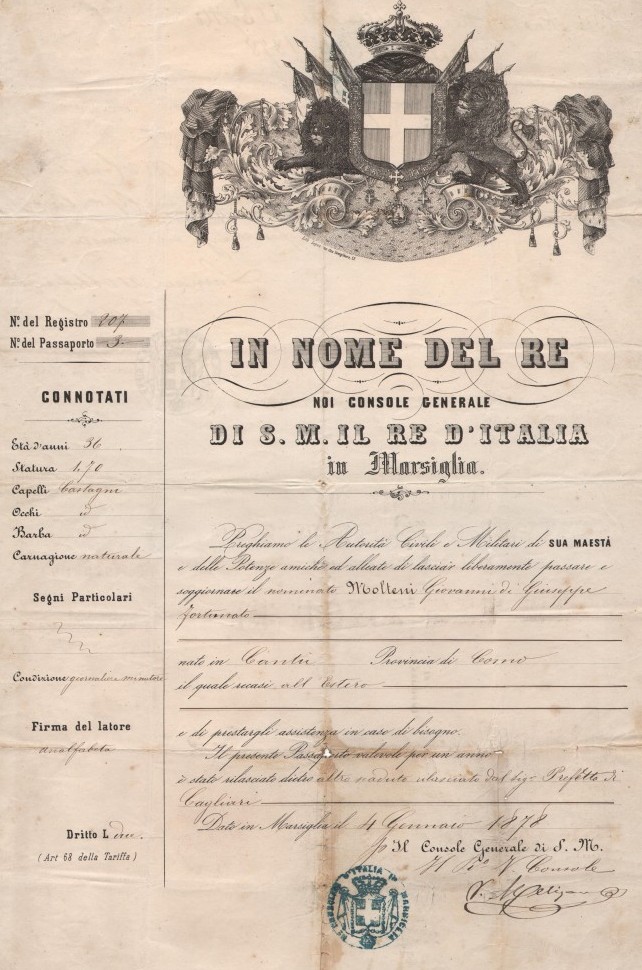 Nº. del Registro 107
Nº. del Passaporto 3.
CONNOTATI
Età d'anni 36
Statura 1,70
Capelli Castagni
Occhi id
Barba id
Carnagione naturale
Segni Particolari
Condizione giornaliere minatore
Firma del latore
analfabeta
Dritto L. due.
(Art 68 della Tariffa)
IN NOME DEL RE
NOI CONSOLE GENERALE
DI S. M. IL RE D'ITALIA
in Marsiglia.
Preghiamo le Autorità Civili e Militari di SUA MAESTÀ
e delle Potenze amiche ed alleate di lasciar liberamente passare e
soggiornare il nominato Molteni Giovanni di Giuseppe
Fortunato
nato in Cantù Provincia di Como
il quale recasi all'Estero
e di prestargli assistenza in caso di bisogno.
Il presente Passaporto valevole per un anno
è stato rilasciato dietro altro scaduto rilasciato dal Sigr Prefetto di
Cagliari
Dato in Marsiglia il 4 Gennaio 1878
p. Il Console Generale di S. M.
Il Rº V. Console